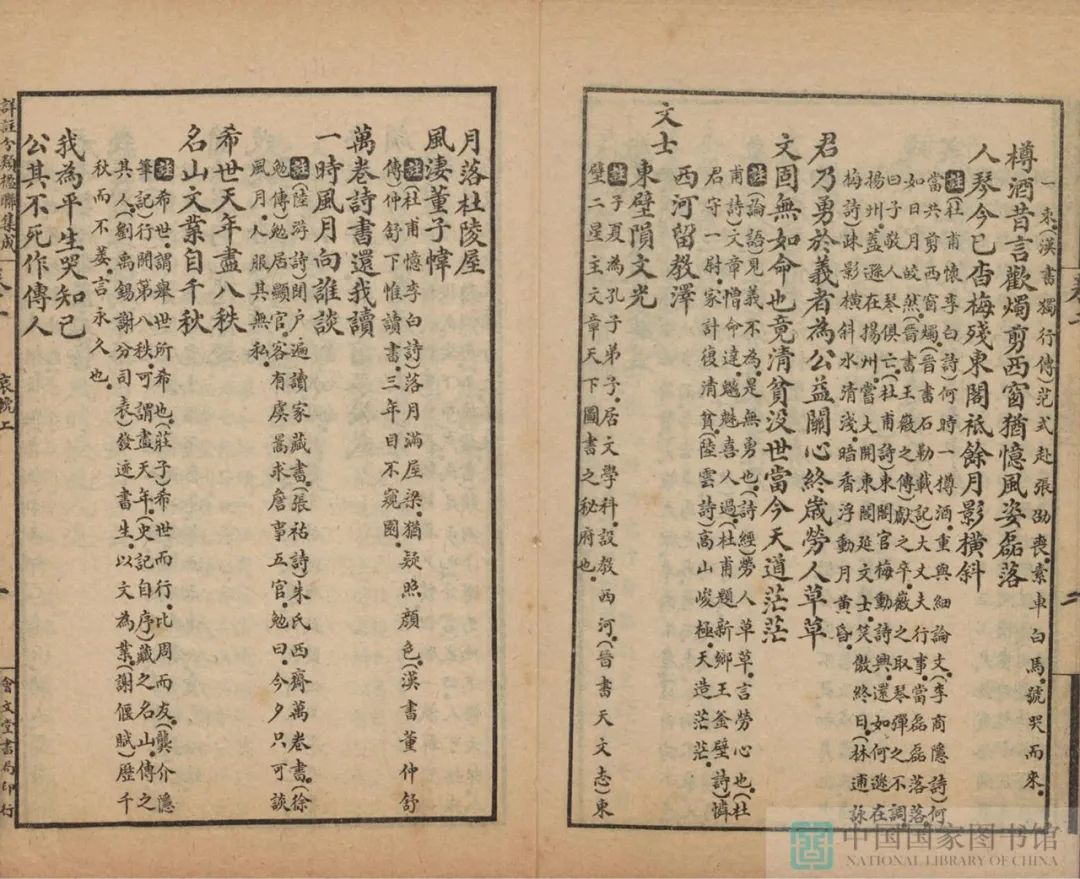 一束。(漢書獨行傳)范式赴張劭喪。素車白馬。號哭而來。
樽酒昔言歡燭剪西窗猶憶風姿磊落
人琴今已杳梅殘東閣祇餘月影橫斜
註(杜甫懷李白詩)何時一樽酒。重與細論文。(李商隱詩)何
當共剪西窗燭。(晉書石勒載記)大丈夫行事。當磊磊落落。
如日月皎然。(晉書王徽之傳)獻之卒。徽之取琴彈之不調。
曰子敬人琴俱亡。(杜甫詩)東閣官梅動詩興。還如何遜在
揚州。蓋遜在揚州。嘗大開東閣延文士。笑傲終日。(林逋詠
梅詩)疎影橫斜水清淺。暗香浮動月黃昏。
君乃勇於義者為公益關心終歲勞人草草
文固無如命也竟清貧沒世當今天道茫茫
註(論語)見義不為。是無勇也。(詩經)勞人草草。言勞心也。(杜
甫詩)文章憎命達。魑魅喜人過。(杜甫題新鄉王釜壁詩)憐
君守一尉。家計復清貧。(陸雲詩)高山峻極。天造茫茫。
文士
西河留教澤
東壁隕文光
註子夏為孔子弟子。居文學科。設教西河。(晉書天文志)東
壁二星主文章天下圖書之秘府也。
月落杜陵屋
風淒董子幃
註(杜甫憶李白詩)落月滿屋梁。猶疑照顏色。(漢書董仲舒
傳)仲舒下帷讀書。三年目不窺園。
萬卷詩書還我讀
一時風月向誰談
註(陸游詩)閉戶遍讀家藏書。(張祜詩)朱氏西齋萬卷書。(徐
勉傳)勉居顯官。客有虞暠求詹事五官。勉曰。今夕只可談
風月。人服其無私。
希世天年盡八秩
名山文業自千秋
註希世。謂舉世所希也。(莊子)希世而行。比周而友。(龔介隱
筆記)行開第八秩。可謂盡天年。(史記自序)藏之名山。傳之
其人。(劉禹錫謝分司表)發迹書生。以文為業。(謝偃賦)歷千
秋而不萎。言永久也。
我為平生哭知己
公其不死作傳人
詳註分類楹聯集成
哀輓上
會文堂書局印行
中国国家图书馆
NATIONAL LIBRARY OF CHINA